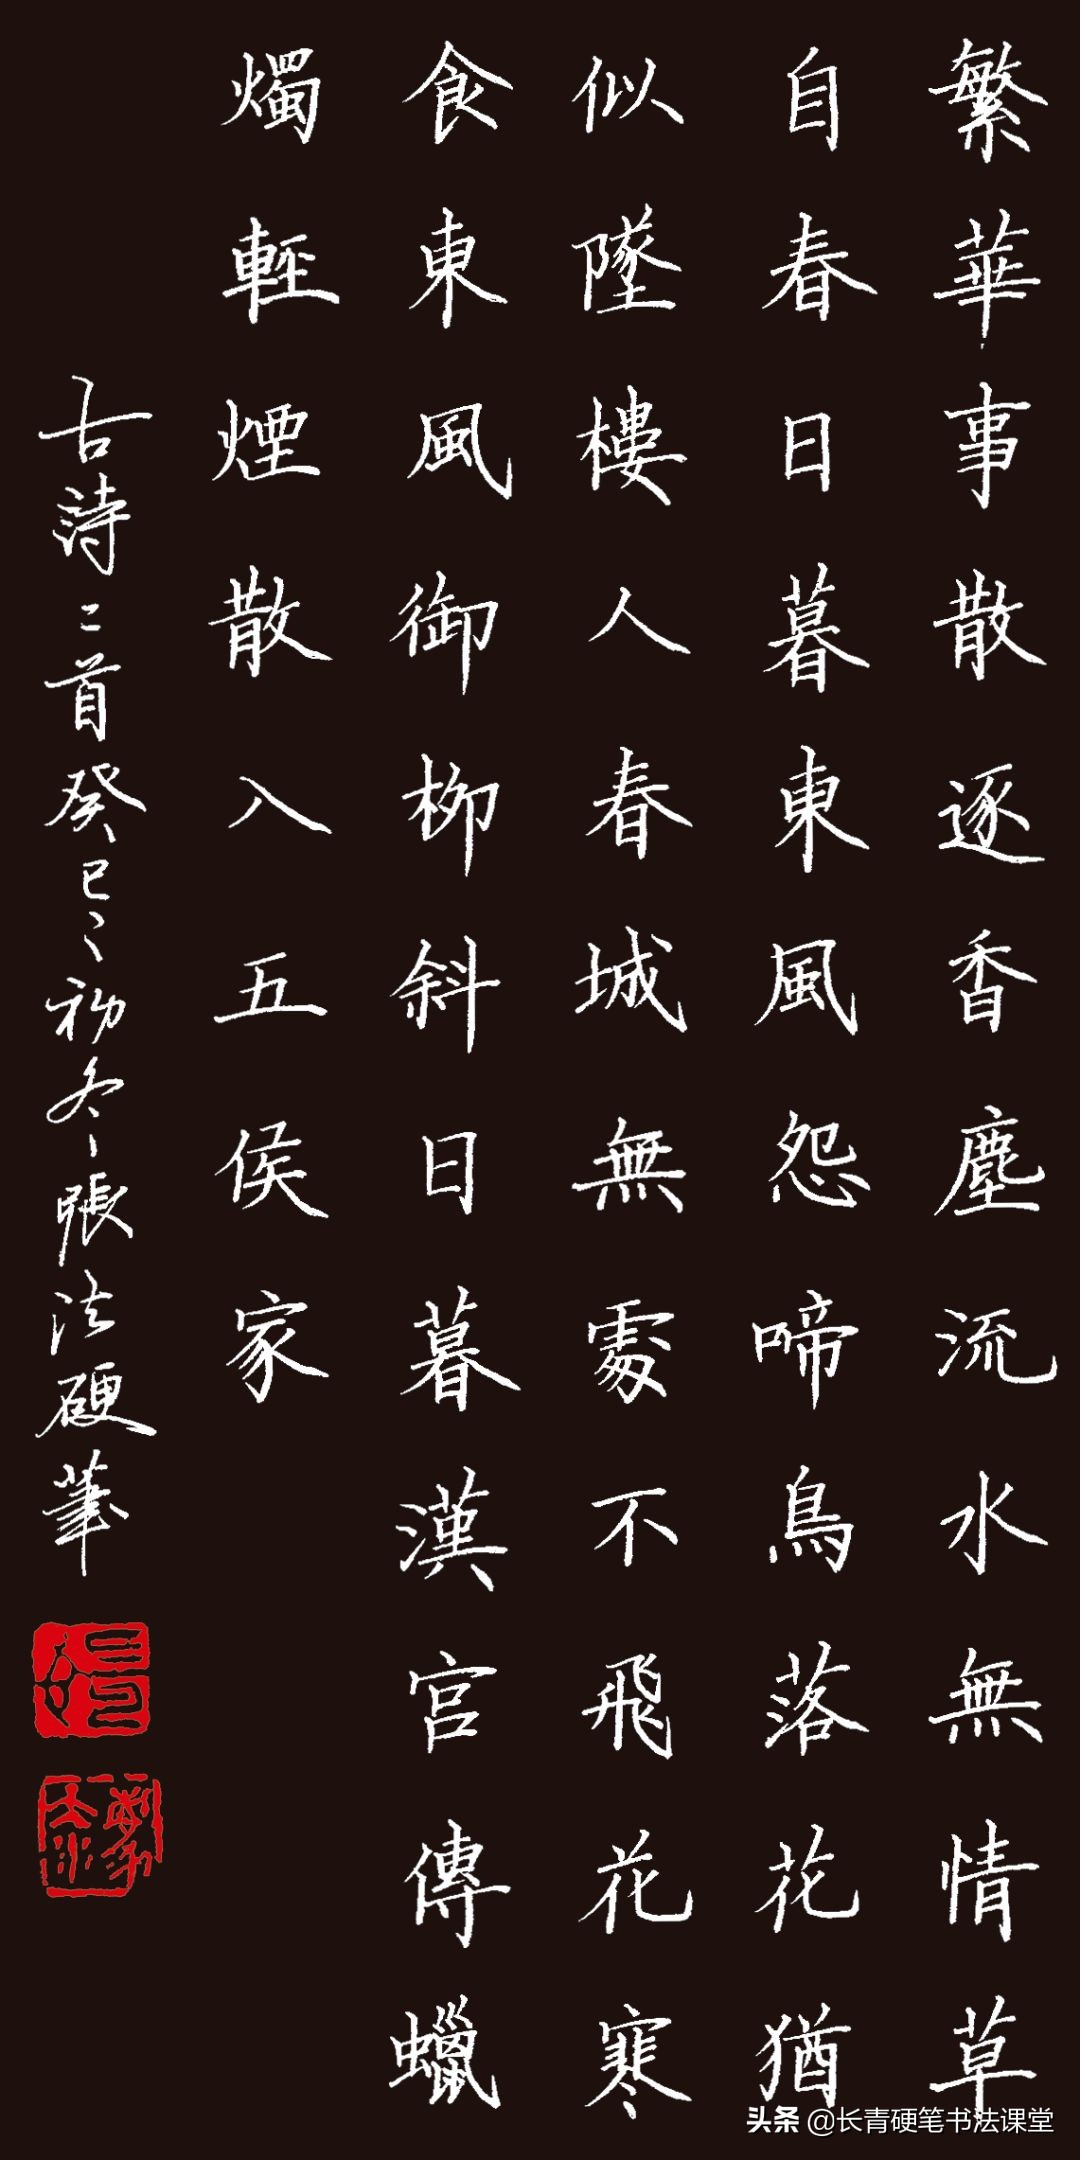 繁華事散逐香塵流水無情草
自春日暮東風怨啼鳥落花猶
似墜樓人春城無處不飛花寒
食東風御柳斜日暮漢宮傳蠟
燭輕煙散入五侯家
古詩二首癸巳之初冬張法硬筆
头条 @长青硬笔书法课堂